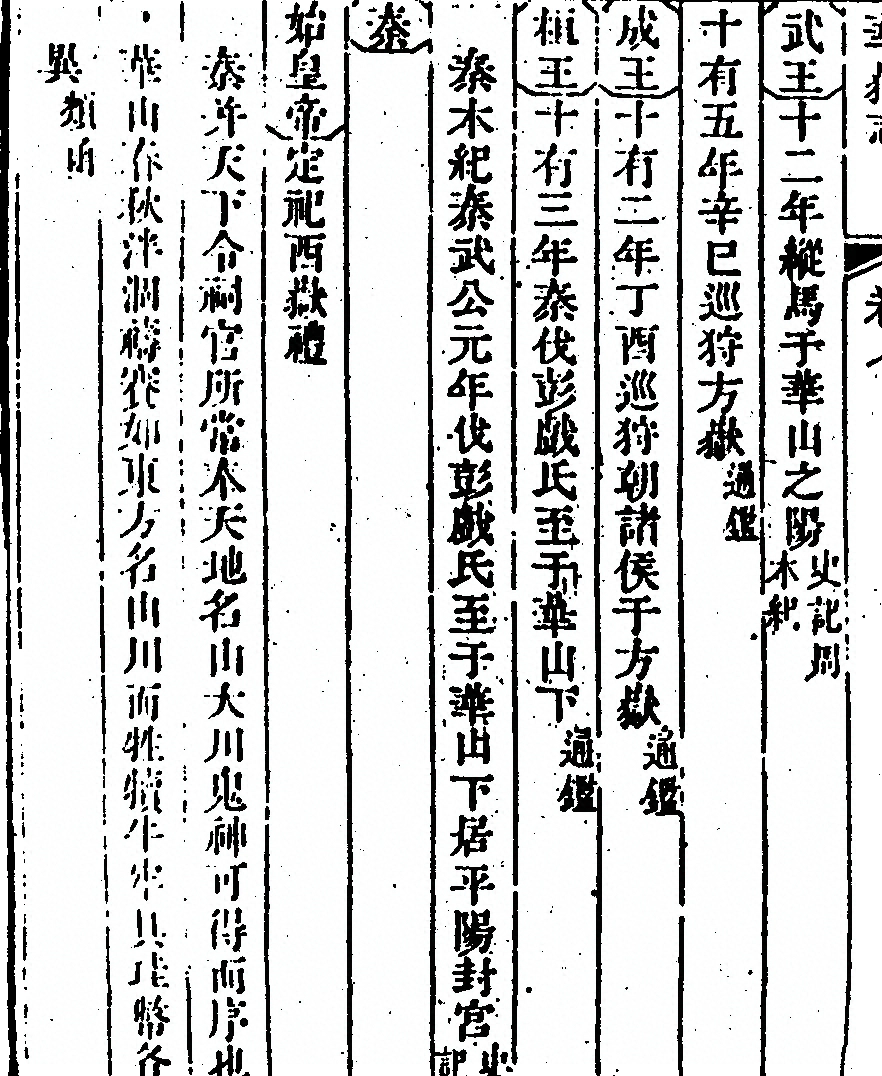 華嶽志
卷
武王十二年縱馬于華山之陽史記周本紀
十有五年辛巳巡狩方嶽通鑑
成王十有二年丁酉巡狩朝諸侯于方嶽通鑑
桓王十有三年秦伐彭戲氏至于華山下通鑑
秦本紀秦武公元年伐彭戲氏至于華山下居平陽封宮史記
秦
始皇帝定祀西嶽禮
秦并天下令祠官所常奉天地名山大川鬼神可得而序也
華山春秋泮涸禱賽如東方名山川而牲犢牛牢具珪幣各
異類函